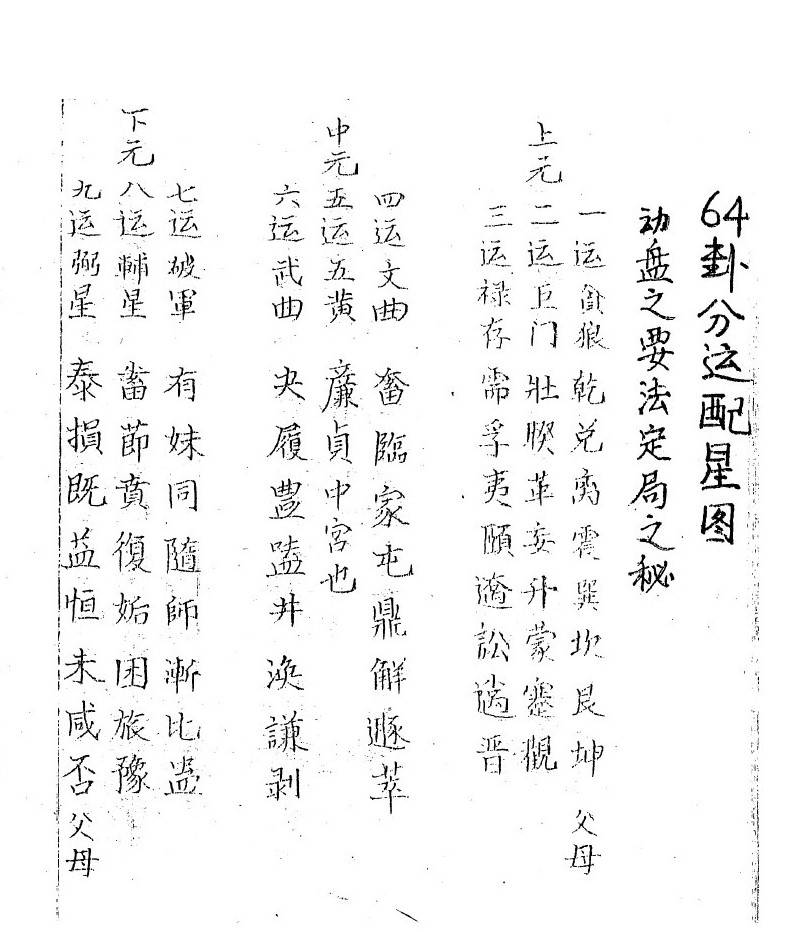 64卦分运配星图
动盘之要法定局之秘
上元
一运貪狼 乾兑离震巽坎艮坤 父母
二运巨门 壮睽革妄升蒙蹇觀
三运禄存 需孚夷頤過訟過晋
中元
四运文曲 畜臨家屯鼎解遯萃
五运五黄 廉貞中宫也
六运武曲 夬履豊嗑井渙謙剥
下元
七运破軍 有妹同隨師漸比蛊
八运輔星 畜節賁復姤困旅豫
九运弼星 泰損既益恒未咸否 父母